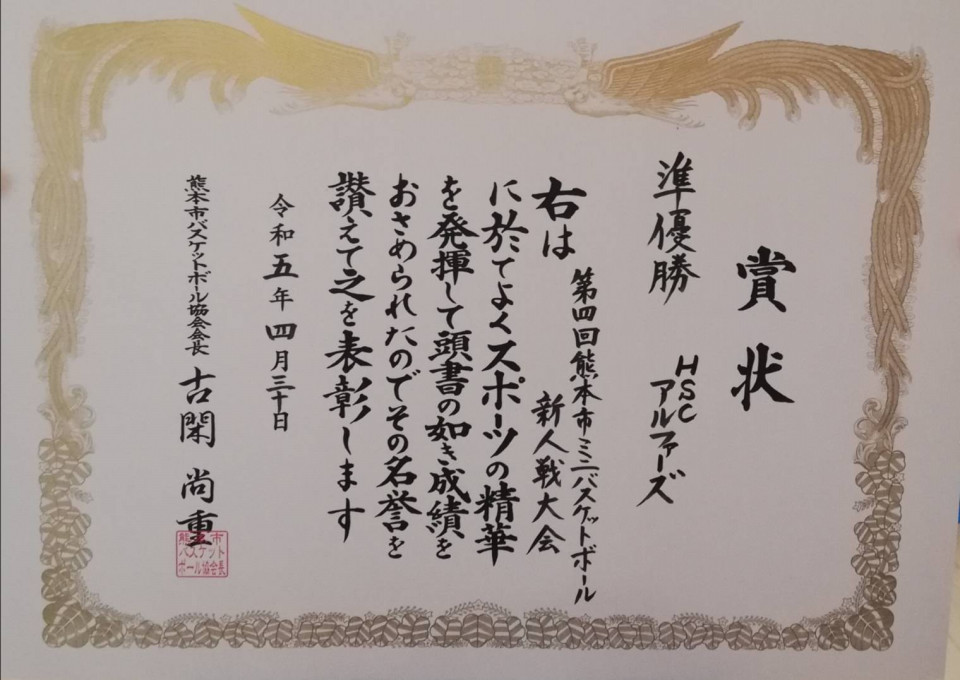 賞状
準優勝
HSC
アルファーズ
右は
第四回熊本市ミニバスケットボール
新人戦大会
に於てよくスポーツの精華
を発揮して頭書の如き成績を
おさめられたのでその名誉を
讃えて之を表彰します
令和五年四月三十日
熊本市バスケットボール協会会長
古閑尚重
熊本市
バスケット
ボール協会長